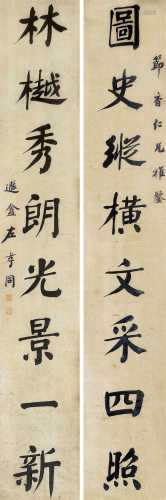 圖史縱橫文采四照
節香仁兄雅鑒
林樾秀朗光景一新
遯盦左孝同